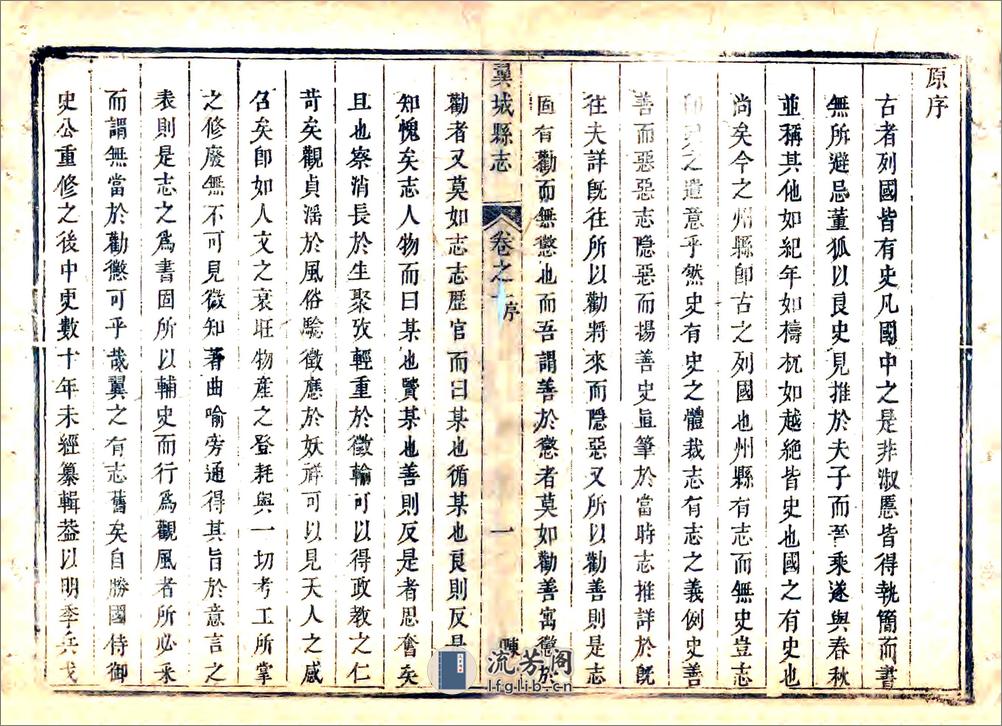 原序
古者列國皆有史凡國中之是非淑慝皆得執簡而書
無所避忌董狐以良史見推於夫子而晉乘遂與春秋
並稱其他如紀年如檮杌如越絕皆史也國之有史也
尚矣今之州縣即古之列國也州縣有志而無史豈志
即史之遺意乎然史有史之體裁志有志之義例史善
善而惡惡志隱惡而揚善史直筆於當時志推詳於既
往夫詳既往所以勸將來而隱惡又所以勸善則是志
固有勸而無懲也而吾謂善於懲者莫如勸善寓懲於
翼城縣志 卷之 序 一
勸者又莫如志志歷官而曰某也循某也良則反是
知愧矣志人物而曰某也賢某也善則反是者思奮矣
且也察消長於生聚攷輕重於徵輸可以得政教之仁
苛矣觀貞滛於風俗驗徵應於妖祥可以見天人之感
召矣即如人文之衰旺物產之登耗與一切考工所掌
之修廢無不可見微知著曲喻旁通得其旨於意言之
表則是志之為書固所以輔史而行為觀風者所必采
而謂無當於勸懲可乎哉翼之有志舊矣自勝國侍御
史公重修之後中更數十年未經纂輯葢以明季兵戈
流芳閣
lfglib.cn